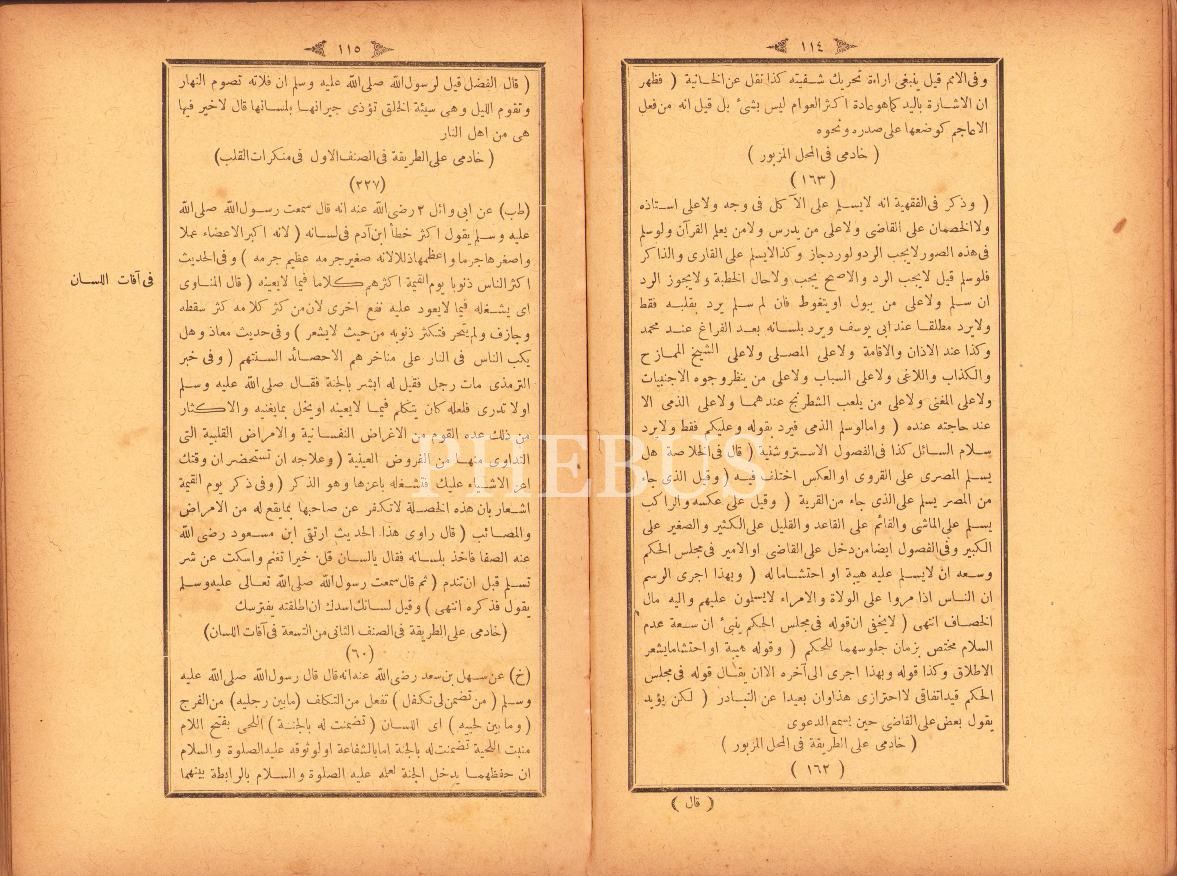 ١١٤
وفى الامم قيل ينبغى اراءة تحريك شفيته كذا نقل عن الخانية ( فظهر
ان الاشارة باليد كما هو عادة اكثر العوام ليس بشئ بل قيل انه من فعل
الاعاجم كوضعها على صدره ونحوه
( خادمى فى المحل المزبور )
( ١٦٣ )
( وذكر فى الفقهية انه لايسلم على الآكل فى وجه ولاعلى استاذه
ولاالخصمان على القاضى ولاعلى من يدرس ولامن يعلم القرآن ولوسلم
فى هذه الصور لايجب الرد ولورد جاز وكذا لايسلم على القارى والذاكر
فلوسلم قيل لايجب الرد والاصح يجب ولاحال الخطبة ولايجوز الرد
ان سلم ولاعلى من يبول اويتغوط فان لم سلم يرد بقلبه فقط
ولايرد مطلقا عند ابى يوسف ويرد بلسانه بعد الفراغ عند محمد
وكذا عند الاذان والاقامة ولاعلى المصلى ولاعلى الشيخ المازح
والكذاب واللاغى ولاعلى السباب ولاعلى من ينظر وجوه الاجنبيات
ولاعلى المغنى ولاعلى من يلعب الشطرنج عندهما ولاعلى الذمى الا
عند حاجته عنده ( وامالوسلم الذمى فيرد بقوله وعليكم فقط ولايرد
سلام السائل كذا فى الفصول الاستروشنية ( قال فى الخلاصة هل
يسلم المصرى على القروى او العكس اختلف فيه ( وقيل الذى جاء
من المصر يسلم على الذى جاء من القرية ( وقيل على عكسه والراكب
يسلم على الماشى والقائم على القاعد والقليل على الكثير والصغير على
الكبير وفى الفصول ايضا من دخل على القاضى اوالامير فى مجلس الحكم
وسعه ان لايسلم عليه هيبة او احتشاما له ( وبهذا اجرى الرسم
ان الناس اذا مروا على الولاة والامراء لايسلمون عليهم واليه مال
الخصاف انتهى ( لايخفى ان قوله فى مجلس الحكم ينبئ ان سعة عدم
السلام مختص بزمان جلوسهما للحكم ( وقوله هيبة او احتشاما يشعر
الاطلاق وكذا قوله وبهذا اجرى الى آخره الاان يقال قوله فى مجلس
الحكم قيد اتفاقى لااحترازى هذا وان بعيدا عن التبادر ( لكن يؤيد
بقول بعض على القاضى حين يسمع الدعوى
( خادمى على الطريقة فى المحل المزبور )
( ١٦٢ )
( قال )
١١٥
( قال الفضل قيل لرسول الله صلى الله عليه وسلم ان فلانه تصوم النهار
وتقوم الليل وهى سيئة الخلق تؤذى جيرانها بلسانها قال لاخير فيها
هى من اهل النار
( خادمى على الطريقة فى الصنف الاول فى منكرات القلب)
(٢٢٧)
(طب) عن ابى وائل ٢ رضى الله عنه انه قال سمعت رسول الله صلى الله
عليه وسلم يقول اكثر خطأ ابن آدم فى لسانه ( لانه اكبر الاعضاء عملا
واصغرها جرما واعظمها ذللا لانه صغير جرمه عظيم جرمه ) وفى الحديث
اكثر الناس ذنوبا يوم القيمة اكثرهم كلاما فيما لايعينه ( قال المناوى
اى يشغله فيما لايعود عليه نفع اخرى لان من كثر كلامه كثر سقطه
وجازف ولم يتحر فتكثر ذنوبه من حيث لايشعر ) وفى حديث معاذ وهل
يكب الناس فى النار على مناخرهم الاحصائد السنتهم ( وفى خبر
الترمذى مات رجل فقيل له ابشر بالجنة فقال صلى الله عليه وسلم
اولاتدرى فلعله كان يتكلم فيما لايعينه اوبخل بمايغنيه والاكثار
من ذلك عده القوم من الاغراض النفسانية والامراض القلبية التى
التداوى منها من الفروض العينية ( وعلاجه ان تستحضر ان وقتك
اعز الاشياء عليك فتشغله باعزها وهو الذكر ( وفى ذكر يوم القيمة
اشعار بان هذه الخصلة لاتكفر عن صاحبها بمايقع له من الامراض
والمصائب ( قال راوى هذا الحديث ارتقى ابن مسعود رضى الله
عنه الصفا فاخذ بلسانه فقال يالسان قل خيرا تغنم واسكت عن شر
تسلم قبل ان تندم ( ثم قال سمعت رسول الله صلى الله تعالى عليه وسلم
يقول فذكره انتهى ) وقيل لسانك اسدك ان اطلقته يفترسك
(خادمى على الطريقة فى الصنف الثانى من التسعة فى آفات اللسان)
(٦٠)
(خ) عن سهل بن سعد رضى الله عنه انه قال قال رسول الله صلى الله عليه
وسلم ( من تضمن لى تكفل ) تفعل من التكلف (مابين رجليه) من الفرج
( ومابين لحييه ) اى اللسان ( تضمنت له بالجنة ) اللحى بفتح اللام
منبت اللحية تضمنت له بالجنة اما بالشفاعة اولوثوقه عليه الصلوة والسلام
ان حفظهما يدخل الجنة لعلمه عليه الصلوة والسلام بالرابطة بينهما
فى آفات اللسان
PHEBUS